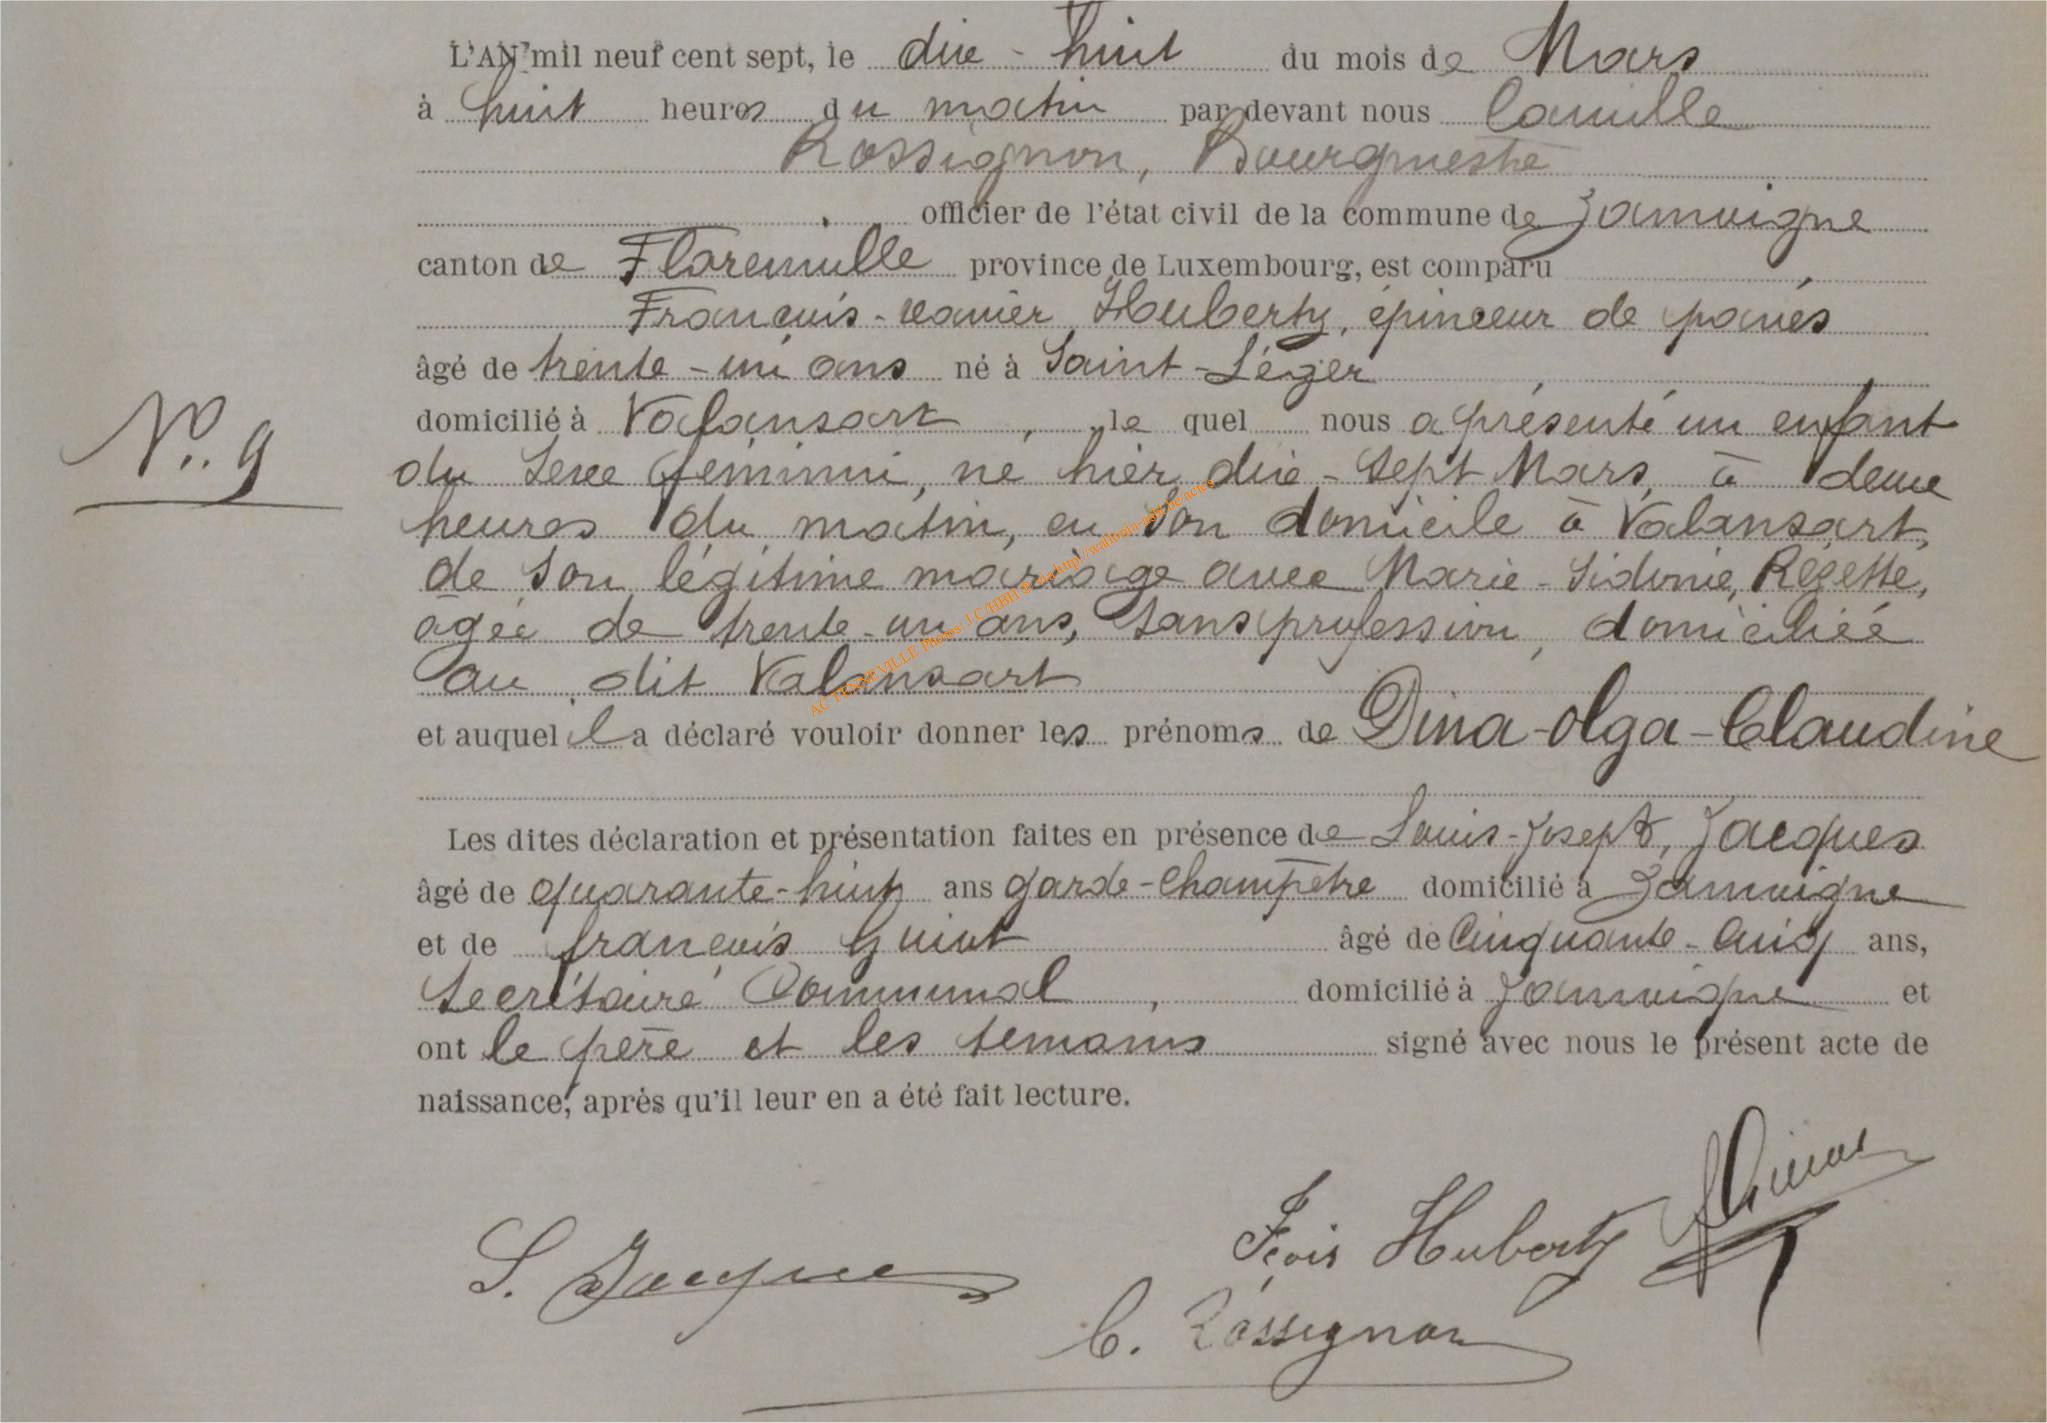 L'AN mil neuf cent sept, le dix-huit du mois de Mars
à huit heures du matin par devant nous Camille
Rossignon, Bourgmestre
officier de l'état civil de la commune de Jamoigne
canton de Florenville province de Luxembourg, est comparu
François-xavier Huberty, épinceur de pavés
âgé de trente-un ans né à Saint-Léger
domicilié à Valansart, le quel nous a présenté un enfant
N°. 9
du sexe féminin, né hier dix-sept Mars, à deux
heures du matin, en son domicile à Valansart,
de son légitime mariage avec Marie-Sidonie, Régette,
âgée de trente-un ans, sans profession, domiciliée
au dit Valansart
et auquel il a déclaré vouloir donner les prénoms de Dina-Olga-Claudine
Les dites déclaration et présentation faites en présence de Louis-Joseph, Jacques
âgé de quarante-huit ans garde-champêtre domicilié à Jamoigne
et de françois Guiot âgé de Cinquante-Cinq ans,
Secrétaire Communal, domicilié à Jamoigne et
ont le père et les témoins signé avec nous le présent acte de
naissance, après qu'il leur en a été fait lecture.
L. Jacques
Fçois Huberty
F Guiot
C. Rossignon